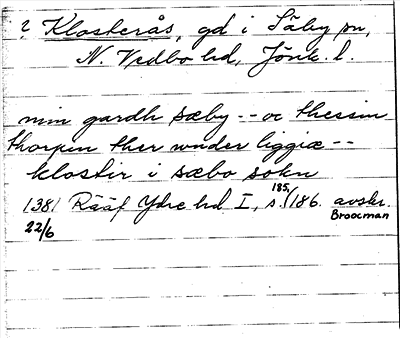 ? Klosterås, gd i Säby sn,
N. Vedbo hd, Jönk. l.
min gardh sæby -- oc thessin
thorpen ther wnder liggiæ --
klostir i sæbo sokn
1381 Rääf Ydre hd I, s. 185/186. avskr.
22/6 Broocman